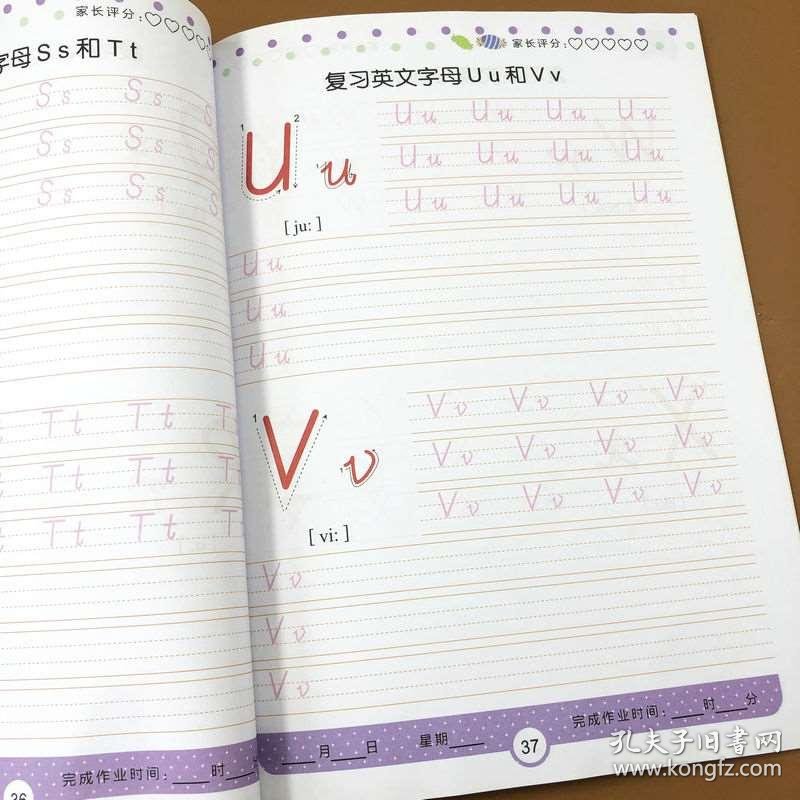 家长评分：
字母Ss和Tt
Ss Ss S
Ss Ss S
Ss Ss S
Tt Tt T
Tt Tt T
Tt Tt T
完成作业时间：____时____
36
家长评分：
复习英文字母Uu和Vv
1 2
Uu
[ju:]
Uu Uu Uu Uu
Uu Uu Uu Uu
Uu Uu Uu Uu
Uu
Uu
Uu
1
Vv
[vi:]
Vv Vv Vv Vv
Vv Vv Vv Vv
Vv Vv Vv Vv
Vv
Vv
Vv
____月____日 星期____
37
完成作业时间：____时____分
孔夫子旧书网
www.kongfz.com